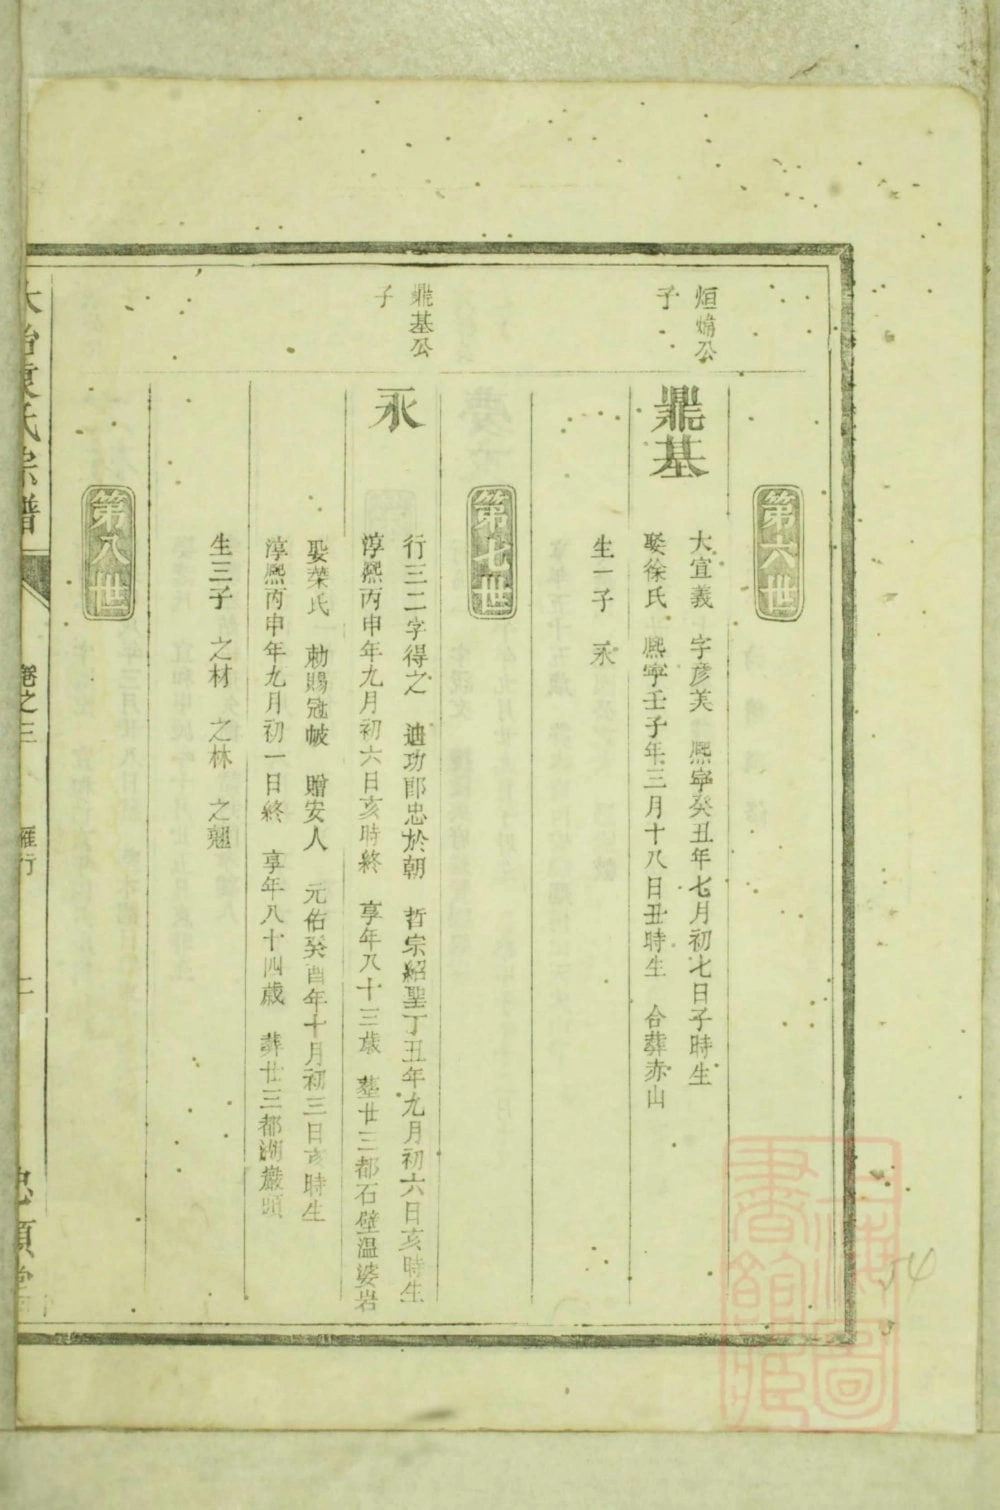 第六世
烜爚公
子
鼎基
大宜義　字彥美　熙寧癸丑年七月初七日子時生
娶徐氏　熙寧壬子年三月十八日丑時生　合葬赤山
生一子　永
第七世
鼎基公
子
永
行三二字得之　迪功郎忠於朝　哲宗紹聖丁丑年九月初六日亥時生
淳熙丙申年九月初六日亥時終　享年八十三歲　墓廿三都石壁溫婆岩
娶葉氏　勅賜冠帔　贈安人　元佑癸酉年十月初三日亥時生
淳熙丙申年九月初一日終　享年八十四歲　葬廿三都湖巖頭
生三子　之材　之林　之翹
第八世
氏宗譜
卷之三
雁行
二
上海圖書館藏
54